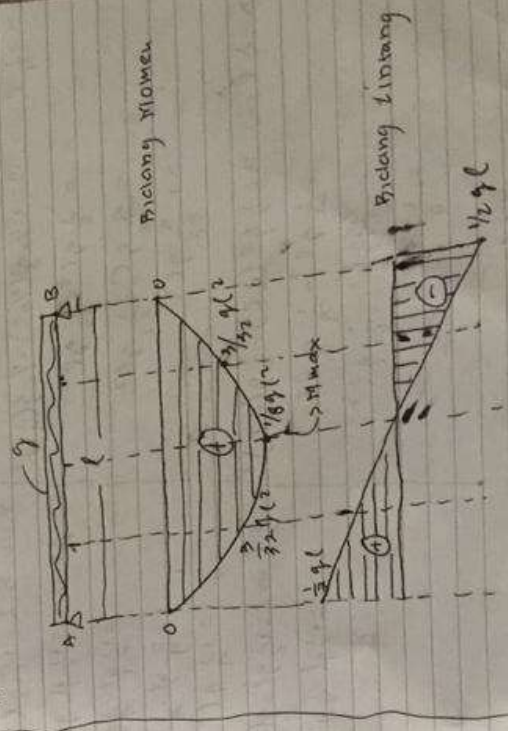 q
A B
l
Bidang Momen
0 0
+
3/32 ql² 1/8 ql² 3/32 ql²
> M max
Bidang Lintang
½ ql
+
-
1/2 ql